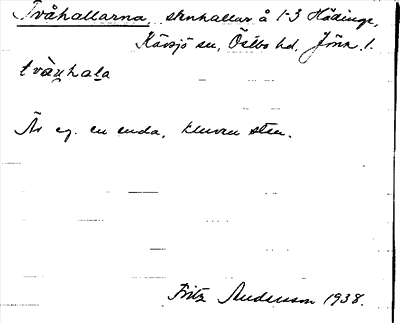 Tvåhallarna, stenhallar å 1-3 Hädinge,
Kävsjö sn, Östbo hd, Jönk. l.
tvåꞑhala
Är eg. en enda, kluven sten.
Fritz Andersson 1938.